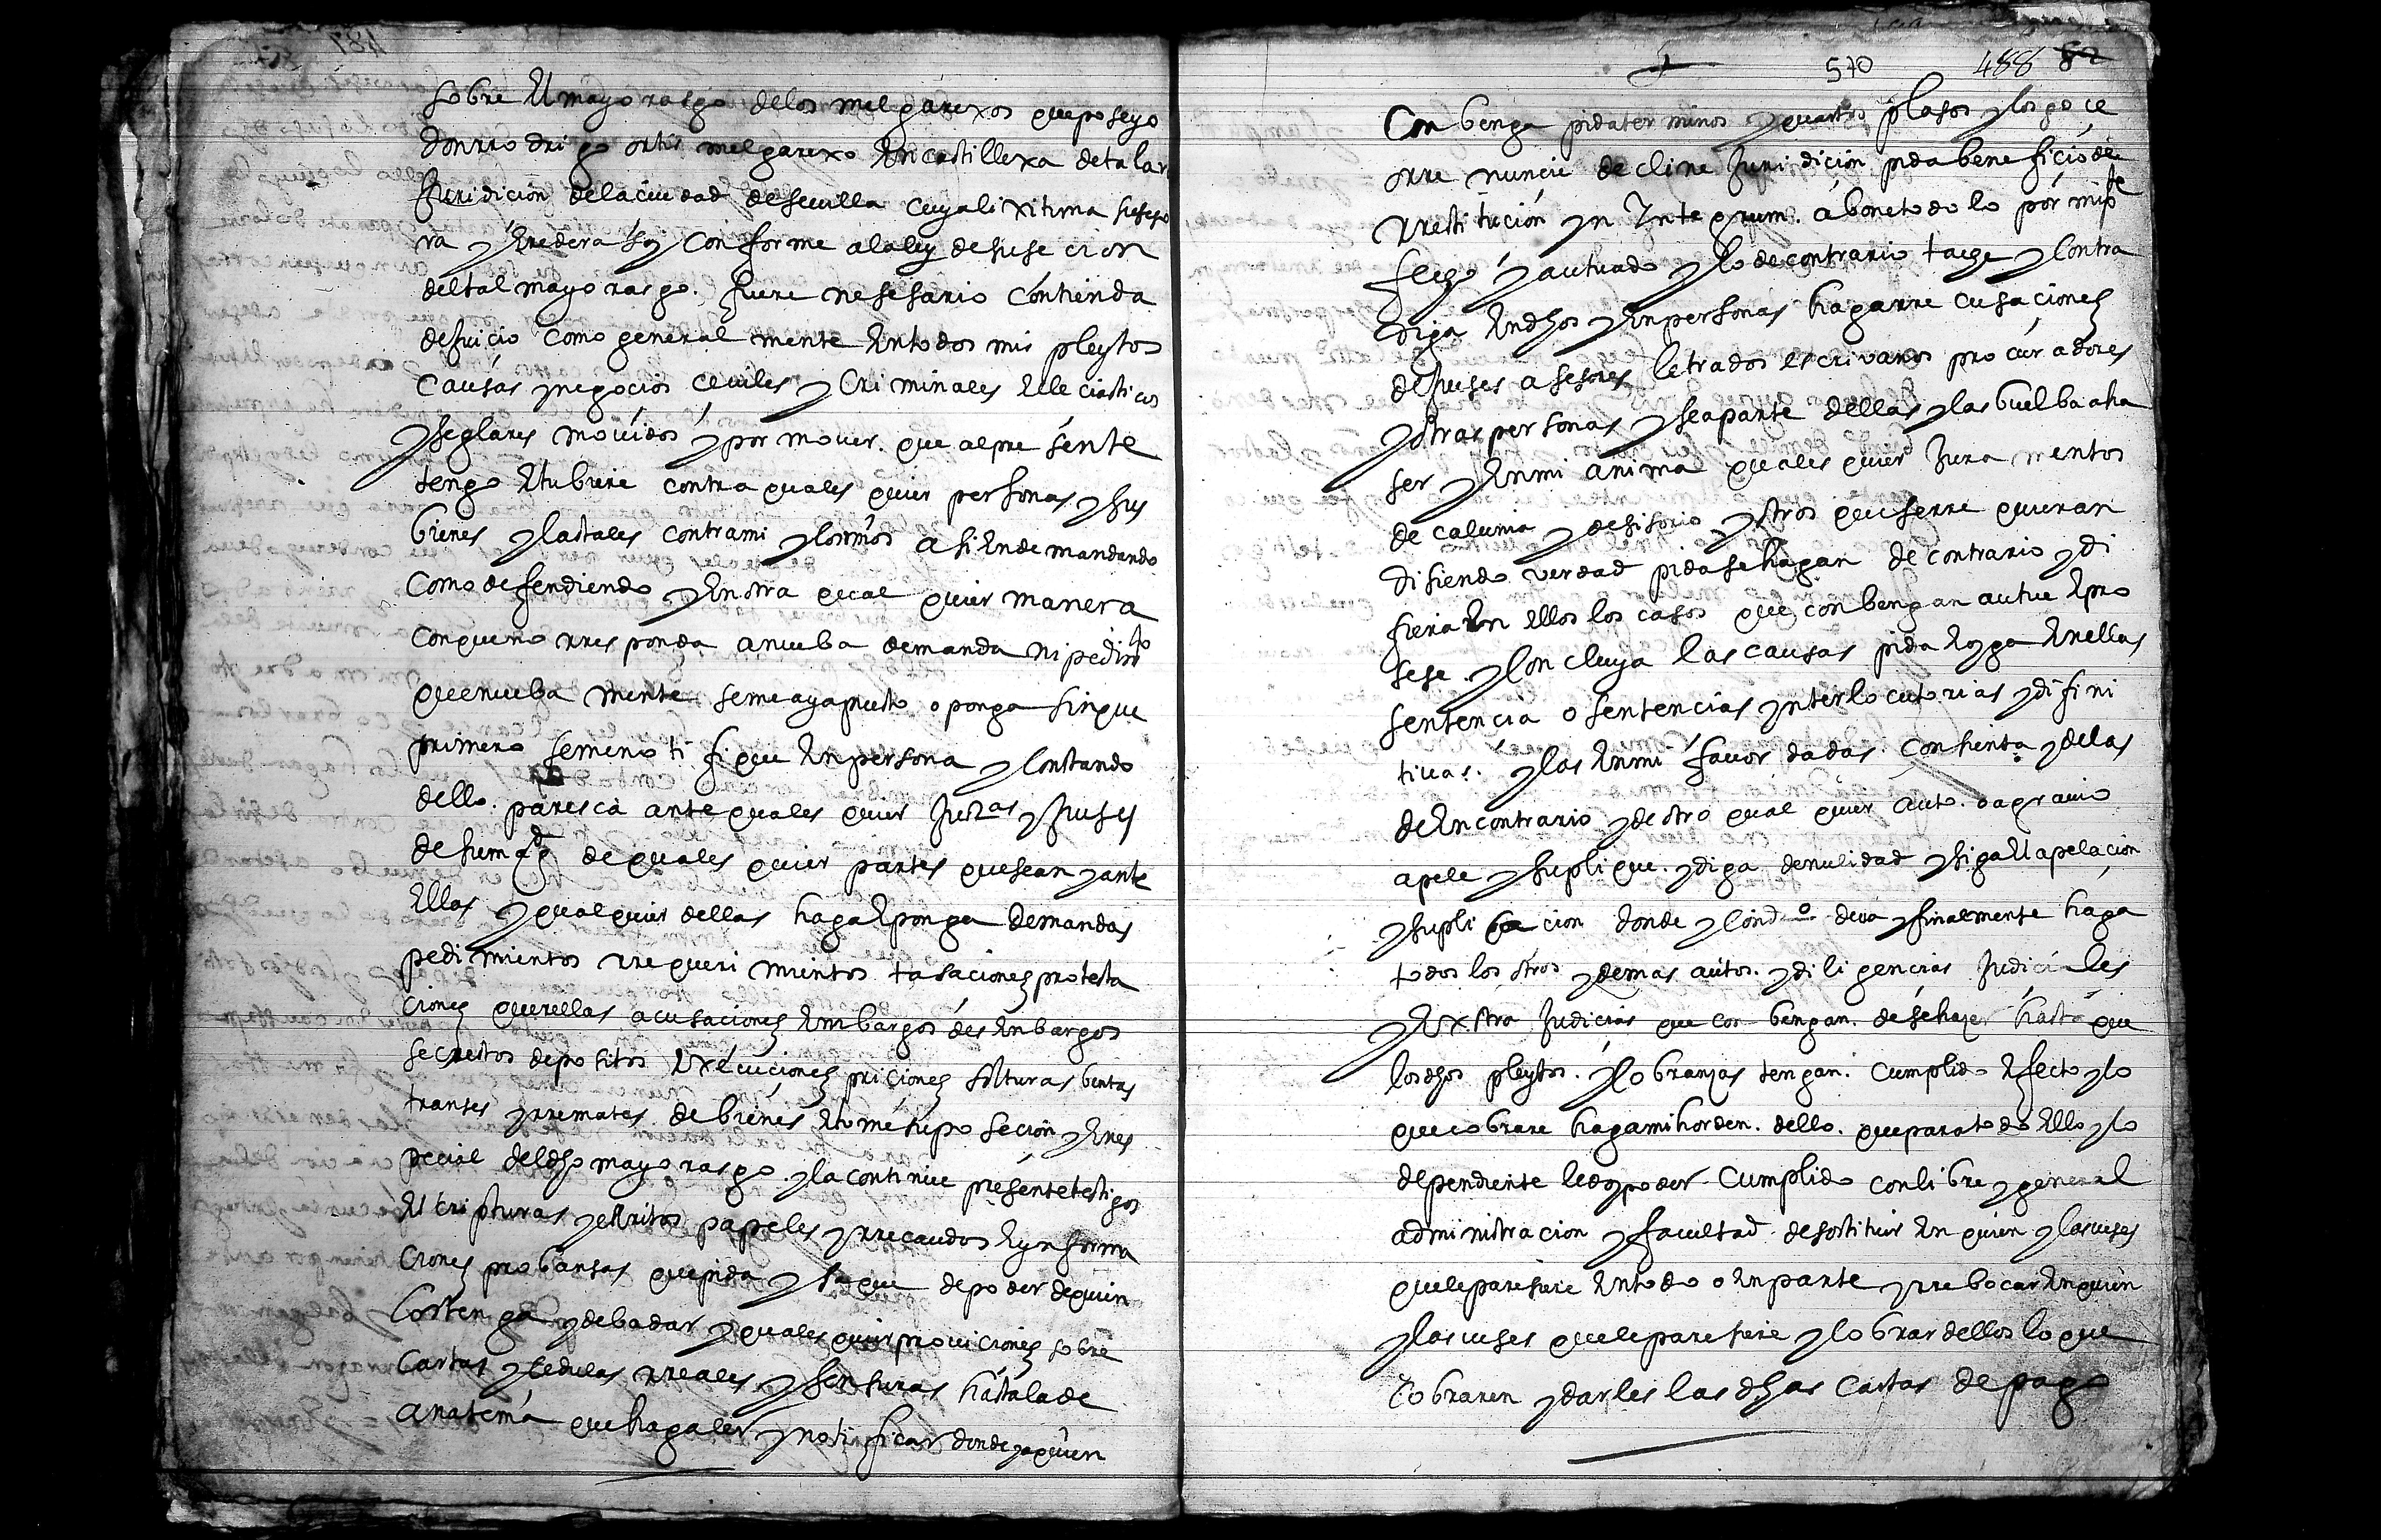 sobre El mayorasgo delos melgarexos que poseyo
don rrodrigo ortis melgarexo En castillexa de talar
Juridicion dela ciudad de seuilla cuya lixitima susesso
ra y Eredera soy conforme a la ley de susecion
del tal mayorasgo. fuere nesesario contienda
de juicio como general mente En todos mis pleytos
causas y negocios ceuiles y criminales Ecleciasticos
y seglares mouidos y por mouer. que al pre sente
tengo E tubiere contra quales quier personas y sus
bienes y las tales contra mi y los mios asi En demandando
como defendiendo y En otra qual quier manera
con que no rresponda a nueba demanda ni pedimto
que nueba mente se me aya puesto o ponga sin que
primero se me notifique En persona y constando
dello. paresca ante quales quier Juzas y Juses
de su magd de quales quier partes que sean y ante
Ellas y qual quier dellas haga E ponga demandas
pedimientos rrequerimientos tasaciones protesta
ciones querellas acusaciones Embargos desEnbargos
secrestos depositos Exécuciones priciones solturas bentas
transes y rremates de bienes E tome su posecion y En es
pecial del dho mayorasgo y la continue présente testigos
Escripturas y escritos papeles y rrecaudos E ynforma
ciones probansas que pida y saque de poder de quien
los tenga y deba dar y quales quier prouiciones sobre
cartas y sedulas rreales y sensuras hasta la de
anatema que haga ler y notificar donde y a quien
570 488 82
Con benga pida terminos y quartos plasos y los goce
o rre nuncie decline Juridicion pida beneficio de
rrestitucion yn Integrum. abone todo lo por mi pte
fecho y autuado y lo de contrario tache y contra
diga En dhos y En personas haga rrecusaciones
de Juses asesores letrados escrivanos procuradores
y otras personas y se aparte dellas y las buelba a ha
ser y En mi anima quales quier Jura mentos
de calunia y desisorio y otros que se rre quieran
disiendo verdad pida se hagan de contrario y di
fiera En ellos los casos que conbengan autue E pro
sese. y concluya las causas pida E oyga En ellas
sentencia o sentencias ynterlocutorias y difini
tiuas. y las En mi fauor dadas. consienta y de las
de En contrario y de otro qual quier auto. o agrauio
apele y suplique. y diga de nulidad y siga El apelacion
y suplicacion donde y con dro deua y finalmente haga
todos los otros y demas autos. y diligencias Judiciales
y Extra Judicias que con bengan. de se hazer hasta que
los dhos pleytos. y cobranzas tengan. cumplido Efecto y lo
que cobrare haga mi horden. dello. que para todo Ello y lo
dependiente le doy poder cumplido con libre y general
administracion y facultad. de sostituir En quien y las veses
que le paresiere En todo o En parte y rrebocar En quien
y las veses que le paresiere y cobrar dellos lo que
cobraren y darles las dhas cartas de pago